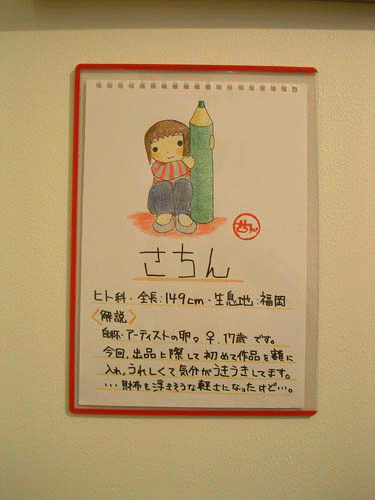 さちん
さちん
ヒト科・全長:149cm・生息地:福岡
〈解説〉
自称・アーティストの卵。♀。17歳です。
今回、出品に際して初めて作品を額に
入れ、うれしくて気分がうきうきしてます。
…財布も浮きそうな軽さになったけど…。